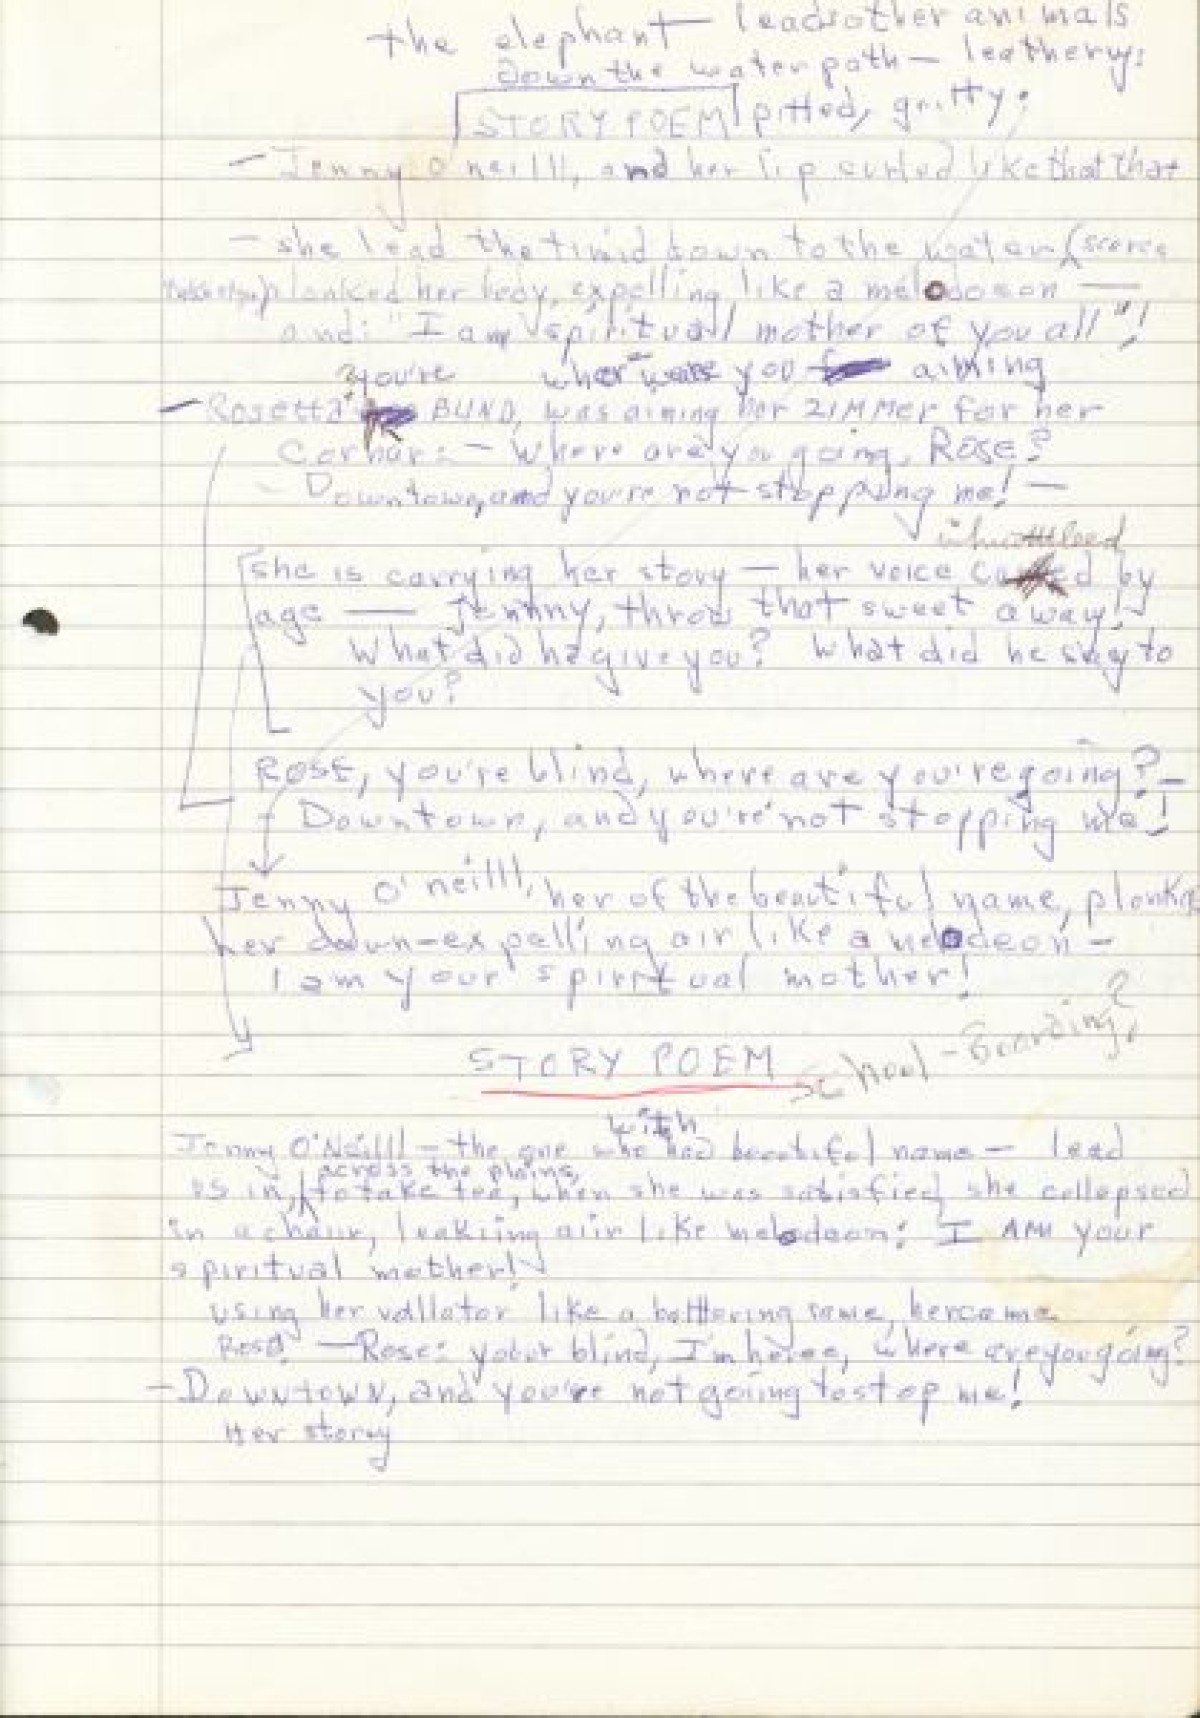 the elephant — leads other animals
down the water path — leathery:
STORY POEM pitted, gritty.
— Jenny O'neilll, and her lip curled like that that
— she lead the timid down to the water (
plonked her body, expelling like a melodoeon —
and: "I am spiritual mother of you all"!
you're where were you aiming
— Rosetta BLIND, was aiming her ZIMMER for her
Corhar: — Where are you going, Rose?
— Downtown, and you're not stopping me! —
she is carrying her story — her voice by
age — Jennny, throw that sweet away!
What did he give you? What did he say to
you?
ROSE, you're blind, where are you're going? —
— Downtown, and you're not stopping me!
Jenny O'neilll, her of the beautiful name, plonks
her down - expelling air like a melodeon —
I am your spiritual mother!
STORY POEM School - Boarding?
with
Jenny O'Neilll — the one who had beautiful name — lead
across the plains,
us in, to take tea, when she was satisfied, she collapsed
in a chair, leakiing aiir like melodeon: I AM your
spiritual mother!
using her vallator like a battering rame, her came
Rose. — Rose: your blind, I'm here, where are you going?
— Downtown, and you're not going to stop me!
Her storyy